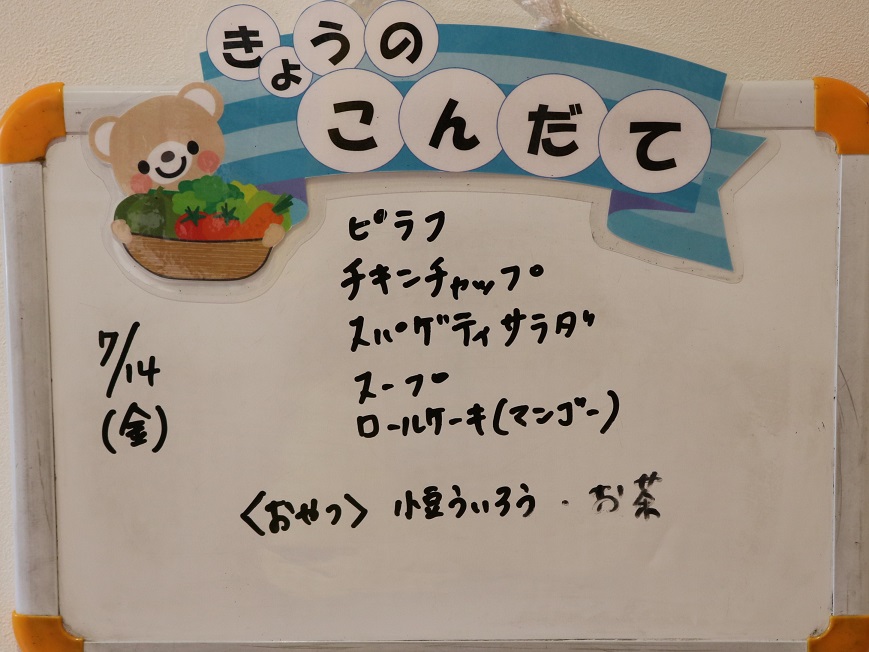 きょうの
こんだて
ピラフ
チキンチャップ
スパゲティサラダ
スープ
ロールケーキ(マンゴー)
7/14
(金)
〈おやつ〉 小豆ういろう・お茶